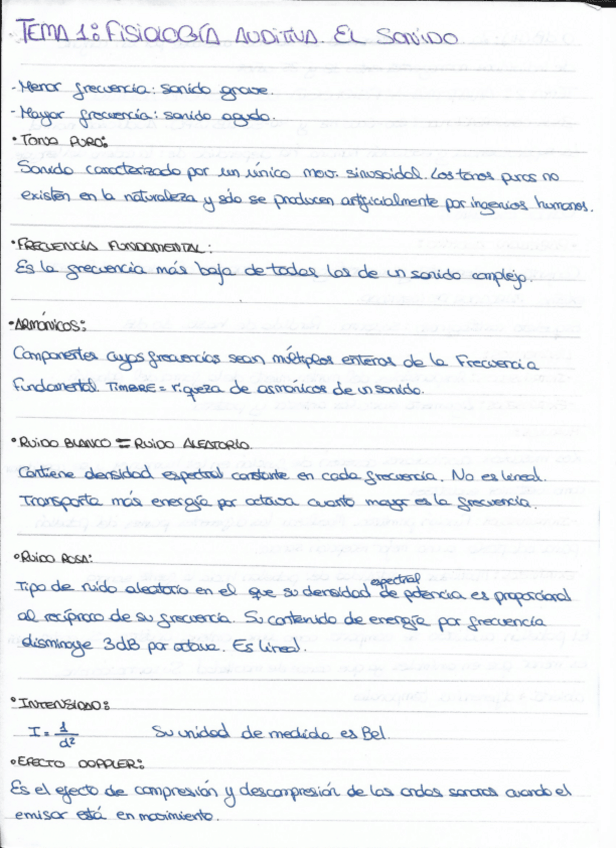 TEMA 1: FISIOLOGÍA AUDITIVA. EL SONIDO
- Menor frecuencia: sonido grave.
- Mayor frecuencia: sonido agudo.
• TONO PURO:
Sonido caracterizado por un único mov. sinusoidal. Los tonos puros no
existen en la naturaleza y sólo se producen artificialmente por ingenios humanos.
• FRECUENCIA FUNDAMENTAL:
Es la frecuencia más baja de todas las de un sonido complejo.
• ARMÓNICOS:
Componentes cuyas frecuencias sean múltiplos enteros de la Frecuencia
Fundamental. TIMBRE = riqueza de armónicos de un sonido.
• RUIDO BLANCO = RUIDO ALEATORIO.
Contiene densidad espectral constante en cada frecuencia. No es lineal.
Transporta más energía por octava cuanto mayor es la frecuencia.
• RUIDO ROSA:
Tipo de ruido aleatorio en el que su densidad espectral de potencia es proporcional
al recíproco de su frecuencia. Su contenido de energía por frecuencia
disminuye 3dB por octava. Es lineal.
• INTENSIDAD:
I = 1/d² Su unidad de medida es Bel.
• EFECTO DOPPLER:
Es el efecto de compresión y descompresión de las ondas sonoras cuando el
emisor está en movimiento.